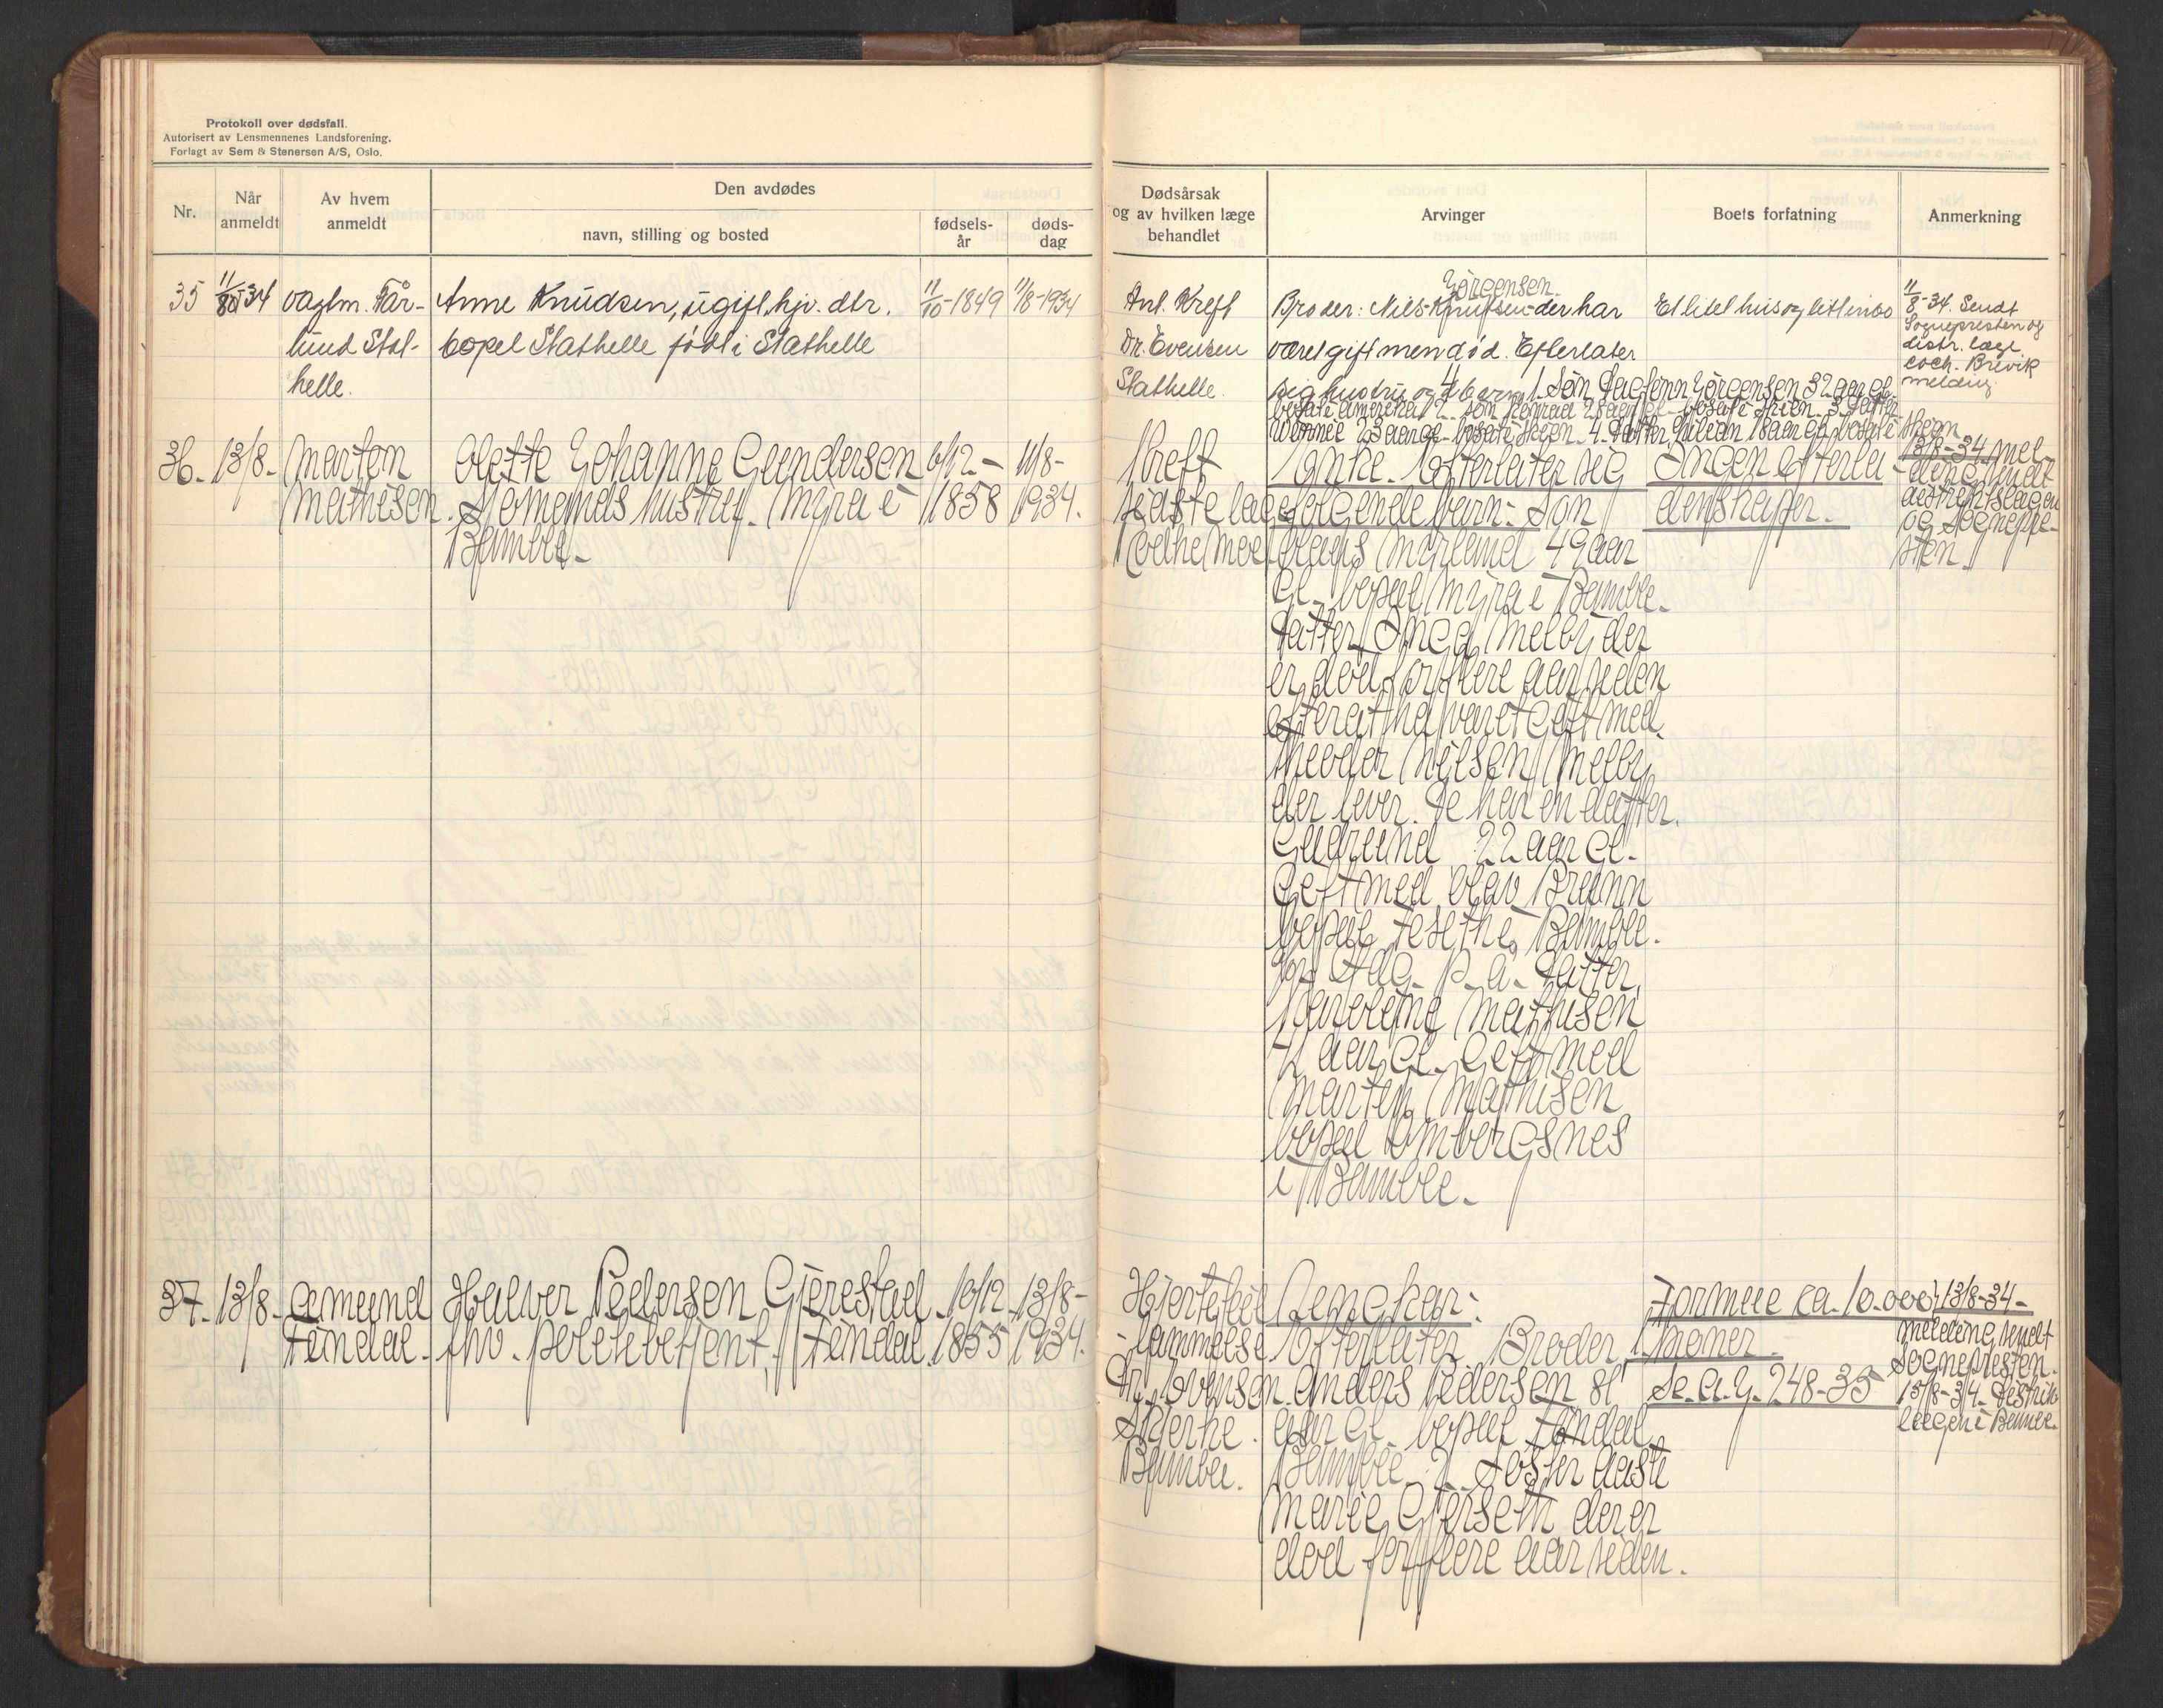 Protokoll over dødsfall.
Autorisert av Lensmennenes Landsforening.
Forlagt av Sem & Stenersen A/S, Oslo.
Nr.
Når
anmeldt
Av hvem
anmeldt
Den avdødes
navn, stilling og bosted
fødsels-
år
døds-
dag
Dødsårsak
og av hvilken læge
behandlet
Arvinger
Boets forfatning
Anmerkning
35
11/8-34
vagtm. Får-
lund Stat-
helle.
Anne Knudsen, ugift, hjv. dtr.
bopel Stathelle født i Stathelle
11/10-1849
11/8-1934
Ant. Kreft
Dr. Evensen
Stathelle.
Jörgensen.
Broder: Nils Knutsen der har
været gift men død. Efterlater
sig hustru og 4 barn 1. Søn Dagfinn Jörgensen 32 aar gl.
bosat i Amerika 2. søn Konrad 28 aar gl. bosat i Skien. 3. datter
23 aar gl. bosat i Skien. 4. datter Lilian 18 aar gl. bosat i Skien.
Et litet hus og litt inbo
11/8-34. Sendt
Sognepresten og
distr. læge
coch. Brevik
melding.
36.
13/8-
Marten
Mathisen.
Olette Johanne Gundersen
Sjömands hustru. Myra i
Bamble.
6/12-
1858
11/8-
1934.
Kreft
sidste læge
Coche Moe
Enke. Efterlater sig
følgende barn: Søn
Olaus Myrlund 49 aar
gl. bopæl Myra i Bamble.
Datter Inga Melby der
er død for flere aar siden
efter at ha været gift med
Theodor Nilsen Melby
der lever. De har en datter.
Gudrund 22 aar gl.
Gift med Olav Brunn
bopæl Feset i Bamble.
Datter
Karoline Mathisen
aar gl. gift med
Marten Mathisen
bopæl Omborgsnes
i Bamble.
Ingen efterla-
denskaper.
13/8-34. Mel-
ding sendt
distriktslægen
og Sognepre-
sten.
37.
13/8-
Amund
Findal.
Halvor Pedersen Gjerestad
fhv. politibetjent, Findal.
10/12
1855
13/8-
1934.
Hjertefeil
-lammelse
Dr. Evensen
Stjerne.
Bamble.
Ungkar:
Efterlater Broder 1.
Anders Pedersen 81
aar gl. bopæl Findal
Bamble. 2. Søster Aaste
Marie Gjerseth der er
død for flere aar siden.
Formue ca. 10.000
kroner.
Se. A.J. 248-35
13/8-34-
Melding sendt
Sognepresten.
15/8-34. Distrikts
lægen i Bamble.